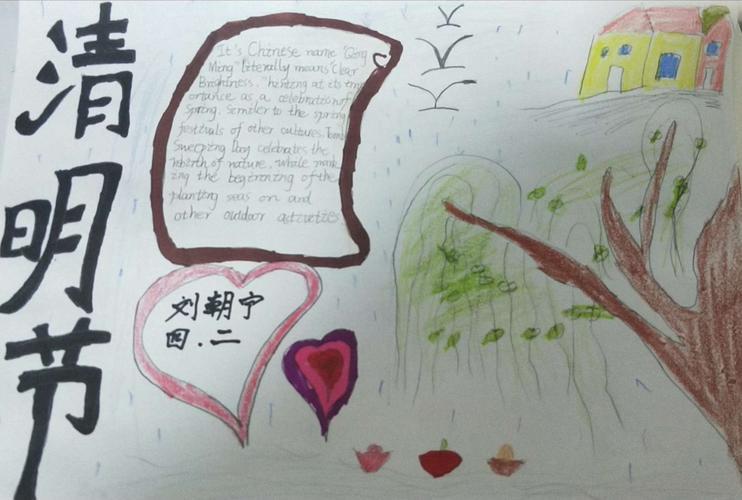 清明节
It's Chinese name "Qing
Ming" literally means "Clear
Brightness," hinting at its imp
ortance as a celebration of
Spring. Similer to the spring
festivals of other cultures, Tomb
Sweeping Day celebrates the
rebirth of nature, while mark
ing the beginning of the
planting seas on and
other outdoor activities
刘朝宁
四.二